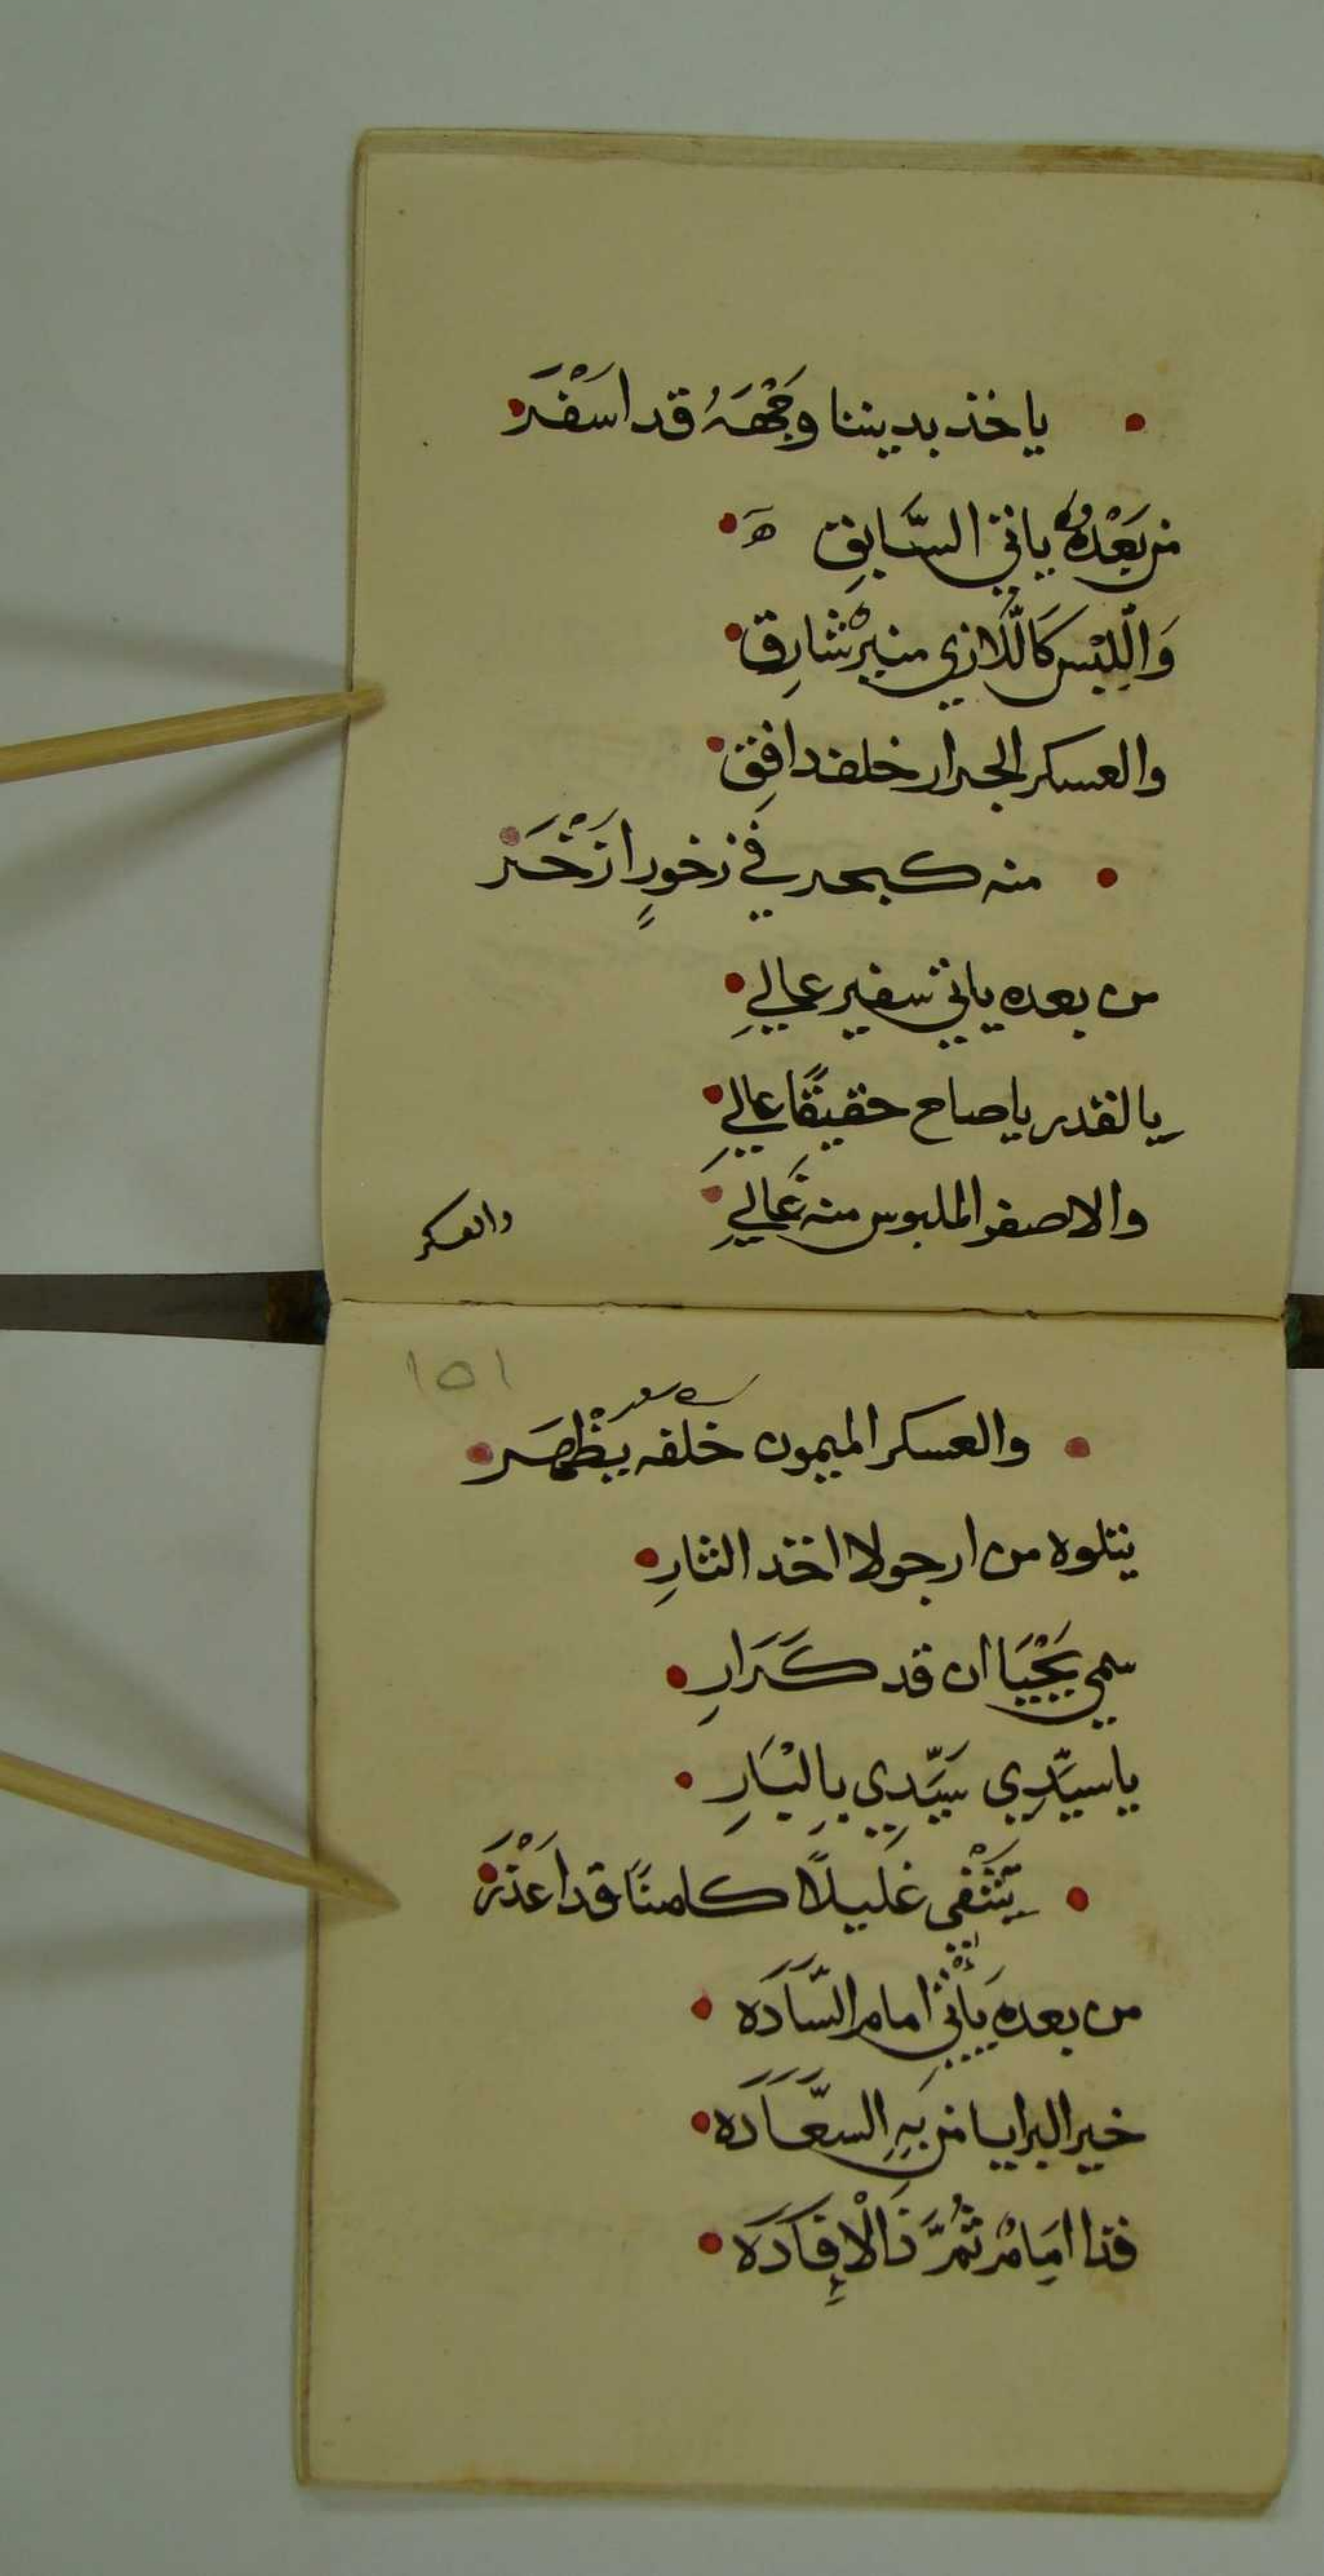 ياخذ بديننا وَجْهَهُ قد اسَفْرَ
من بَعْدهُ ياتي السَّابِق هَ
وَالِّلبْس كَالَّلازي منيرْ شَارِق
والعسكر الجرار خلفه دافِق
منه كبحر في زخورٍ ازَخْرَ
من بعده ياتي سفير عالي
يالقدر يا صاح حقيقًا عالي
والاصفر الملبوس منه غَالي
والعسكر
١٥١
والعسكر الميمون خلفه يظْهَر
يتلوه من ارجو لا اخد الثارِ
سمي يَحْيَا ان قد كَرَارِ
يا سيَّدِي سَيَّدِي بِالبْتَارِ
يَشْفي غليلًا كامنًا قد اعَذْرَ
من بعده يَأْتي امام السَّادَه
خير البرايا من بِهِ السعَّادَه
فذا امَامْ ثُمَّ ذَالْإفَادَه